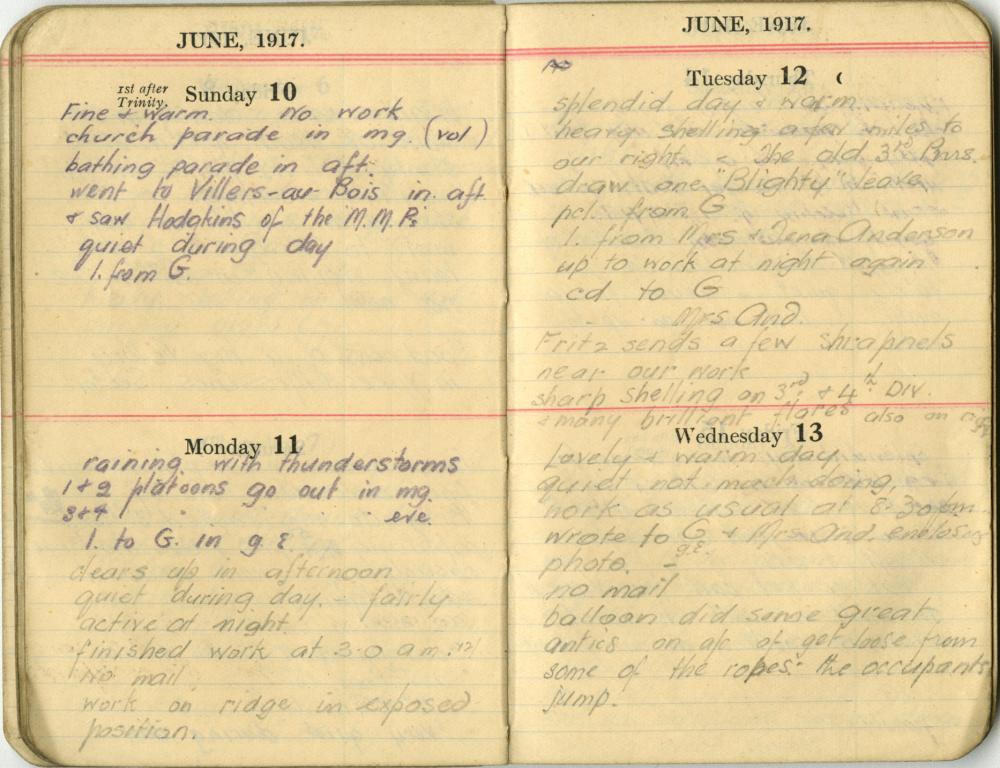 JUNE, 1917.
1st after
Trinity. Sunday 10
Fine & warm. No work
church parade in mg. (vol)
bathing parade in aft.
went to Villers-au-Bois in aft
& saw Hodgkins of the M.M.Ps
quiet during day
l. from G.
Monday 11
raining with thunderstorms
1 & 2 platoons go out in mg.
3 & 4 " " " " eve.
l. to G. in g.E.
clears up in afternoon
quiet during day. - fairly
active at night.
finished work at 3.0 a.m. 12/
no mail
work on ridge in exposed
position.
JUNE, 1917.
Tuesday 12
splendid day & warm
heavy shelling a few miles to
our right. & The old 3rd Pnrs.
draw one "Blighty" leave
pcl. from G
l. from Mrs & Lena Anderson
up to work at night again
cd. to G
Mrs And.
Fritz sends a few shrapnels
near our work
sharp shelling on 3rd & 4th Div.
& many brilliant flares also on
Wednesday 13
Lovely & warm day
quiet not much doing,
work as usual at 8-30 pm.
wrote to G & Mrs And. enclosing
g.E.
photo. -
no mail
balloon did some great
antics on a/c of got loose from
some of the ropes: the occupants
jump.